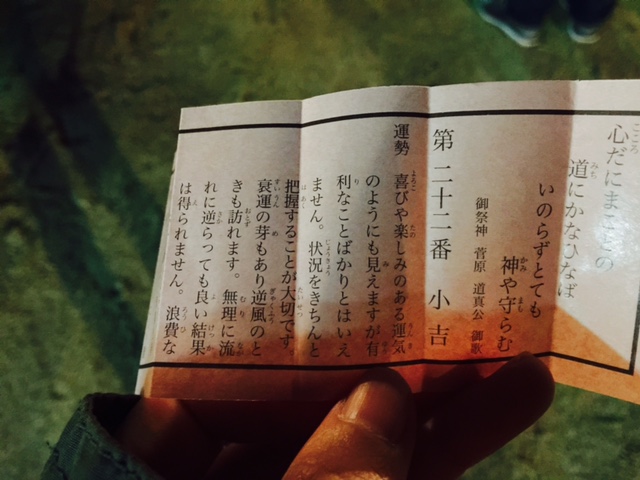 心だにまことの
道にかなひなば
いのらずとても
神や守らむ
御祭神 菅原 道真公 御歌
第二十二番 小吉
運勢 喜びや楽しみのある運気
のようにも見えますが有
利なことばかりとはいえ
ません。状況をきちんと
把握することが大切です。
衰運の芽もあり逆風のと
きも訪れます。無理に流
れに逆らっても良い結果
は得られません。浪費な